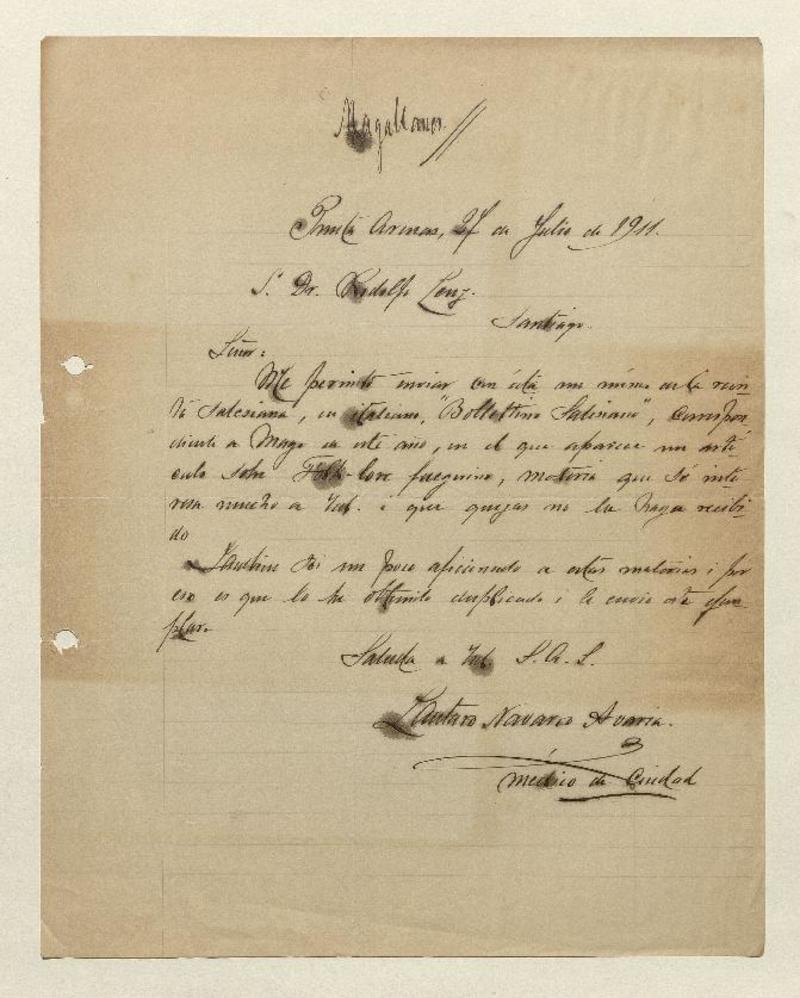 Magallanes.
Punta Arenas, 27 de Julio de 1911.
S. Dr. Rodolfo Lenz.
Santiago.
Señor:
Me permito enviar con ésta un núm. de la revis-
ta Salesiana, en italiano, "Bollettino Salesiano", correspon-
diente a Mayo de este año, en el que aparece un artí-
culo sobre Folk-lore fueguino, materia que sé inte-
resa mucho a Ud. i que quizas no la haya recibi-
do
Tambien soi un poco aficionado a estas materias i por
eso es que lo he obtenido duplicado i le envio este ejem-
plar.
Saluda a Ud. S. A. S.
Lautaro Navarro Avaria.
médico de Ciudad